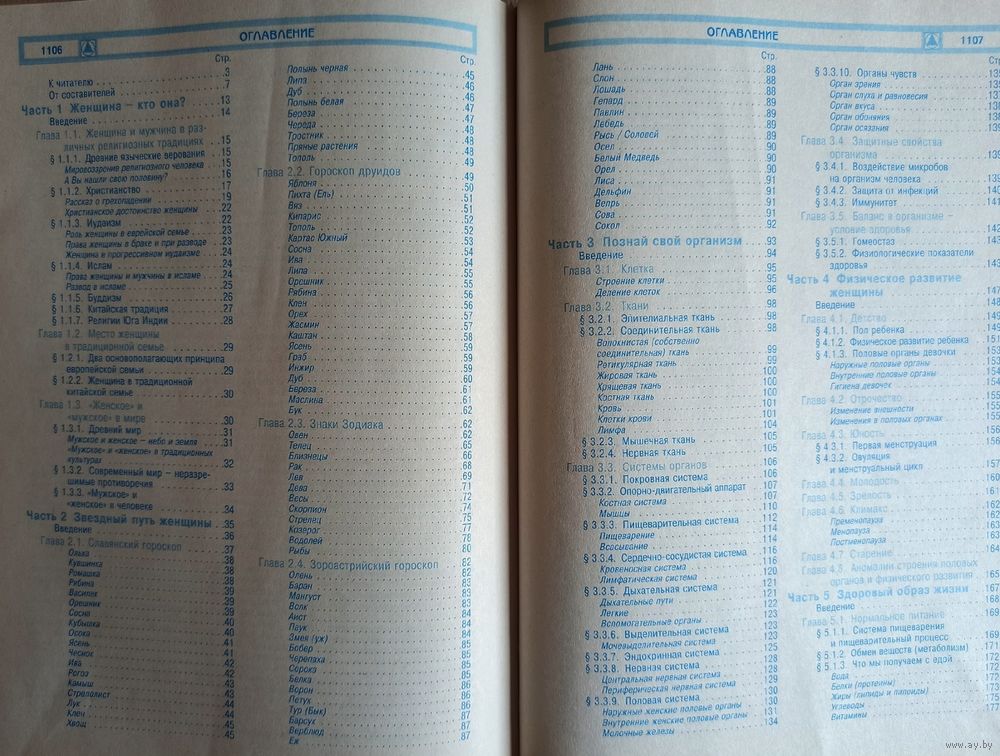 1106
ОГЛАВЛЕНИЕ
Стр.
К читателю . . . 3
От составителей . . . 7
Часть 1 Женщина – кто она? . . 13
Введение . . . 14
Глава 1.1. Женщина и мужчина в раз-
личных религиозных традициях . . .15
§ 1.1.1. Древние языческие верования . .15
Мировоззрение религиозного человека . . .15
А Вы нашли свою половину? . . . 16
§ 1.1.2. Христианство . . . 17
Рассказ о грехопадении . . . 19
Христианское достоинство женщины . . .22
§ 1.1.3. Иудаизм . . . 22
Роль женщины в еврейской семье . . .23
Права женщины в браке и при разводе . .23
Женщина и прогрессивном иудаизме . . .24
§ 1.1.4. Ислам . . . 24
Права женщины и мужчины в исламе . . .24
Развод в исламе . . . 25
§ 1.1.5. Буддизм . . . 26
§ 1.1.6. Китайская традиция . . . 27
§ 1.1.7. Религии Юга Индии . . . 28
Глава 1.2. Место женщины
в традиционной семье . . . 29
§ 1.2.1. Два основополагающих принципа
европейской семьи . . . 29
§ 1.2.2. Женщина в традиционной
китайской семье . . . 30
Глава 1.3. «Женское» и
«мужское» в мире . . . 30
§ 1.3.1. Древний мир . . . 31
Мужское и женское – небо и земля . . .31
«Мужское» и «женское» в традиционных
культурах . . . 32
§ 1.3.2. Современный мир – неразре-
шимые противоречия . . . 33
§ 1.3.3. «Мужское» и
«женское» в человеке . . . 34
Часть 2 Звездный путь женщины . . .35
Введение . . . 36
Глава 2.1. Славянский гороскоп . . . 37
Ольха . . . 38
Кувшинка . . . 38
Ромашка . . . 38
Рябина . . . 39
Василек . . . 39
Орешник . . . 39
Сосна . . . 40
Кубышка . . . 40
Осока . . . 41
Ясень . . . 41
Чеснок . . . 42
Ива . . . 42
Рогоз . . . 43
Камыш . . . 43
Стрелолист . . . 44
Лук . . . 44
Клен . . . 45
Хвощ . . . 45
Стр.
Полынь черная . . . 45
Липа . . . 46
Дуб . . . 46
Полынь белая . . . 47
Береза . . . 47
Череда . . . 48
Тростник . . . 48
Пряные растения . . . 48
Тополь . . . 49
Глава 2.2. Гороскоп друидов . . . 49
Яблоня . . . 50
Пихта (Ель) . . . 51
Вяз . . . 51
Кипарис . . . 52
Тополь . . . 52
Картас Южный . . . 53
Сосна . . . 54
Ива . . . 54
Липа . . . 55
Орешник . . . 55
Рябина . . . 56
Клен . . . 56
Орех . . . 57
Жасмин . . . 57
Каштан . . . 58
Ясень . . . 59
Граб . . . 59
Инжир . . . 59
Дуб . . . 60
Береза . . . 61
Маслина . . . 61
Бук . . . 62
Глава 2.3. Знаки Зодиака . . . 62
Овен . . . 62
Телец . . . 65
Близнецы . . . 66
Рак . . . 68
Лев . . . 69
Дева . . . 71
Весы . . . 72
Скорпион . . . 74
Стрелец . . . 75
Козерог . . . 77
Водолей . . . 78
Рыбы . . . 80
Глава 2.4. Зороастрийский гороскоп . . . 82
Олень . . . 82
Баран . . . 83
Мангуст . . . 83
Волк . . . 83
Аист . . . 84
Паук . . . 84
Змея (уж) . . . 84
Бобер . . . 85
Черепаха . . . 85
Сорока . . . 85
Белка . . . 85
Ворон . . . 86
Петух . . . 86
Тур (Бык) . . . 86
Барсук . . . 87
Верблюд . . . 87
Еж . . . 87
ОГЛАВЛЕНИЕ
1107
Стр.
Лань . . . 88
Слон . . . 88
Лошадь . . . 88
Гепард . . . 89
Павлин . . . 89
Лебедь . . . 89
Рысь / Соловей . . . 89
Осел . . . 90
Белый Медведь . . . 90
Орел . . . 90
Лиса . . . 91
Дельфин . . . 91
Вепрь . . . 91
Сова . . . 91
Сокол . . . 92
Часть 3 Познай свой организм . . . 93
Введение . . . 94
Глава 3.1. Клетка . . . 95
Строение клетки . . . 95
Деление клеток . . . 96
Глава 3.2. Ткани . . . 98
§ 3.2.1. Эпителиальная ткань . . . 98
§ 3.2.2. Соединительная ткань . . . 98
Волокнистая (собственно
соединительная) ткань . . . 99
Ретикулярная ткань . . . 99
Жировая ткань . . . 100
Хрящевая ткань . . . 100
Костная ткань . . . 100
Кровь . . . 101
Клетки крови . . . 101
Лимфа . . . 104
§ 3.2.3. Мышечная ткань . . . 105
§ 3.2.4. Нервная ткань . . . 105
Глава 3.3. Системы органов . . . 106
§ 3.3.1. Покровная система . . . 106
§ 3.3.2. Опорно-двигательный аппарат . . . 107
Костная система . . . 107
Мышцы . . . 110
§ 3.3.3. Пищеварительная система . . . 112
Пищеварение . . . 114
Всасывание . . . 114
§ 3.3.4. Сердечно-сосудистая система . . . 116
Кровеносная система . . . 116
Лимфатическая система . . . 120
§ 3.3.5. Дыхательная система . . . 121
Дыхательные пути . . . 121
Легкие . . . 122
Вспомогательные органы . . . 123
§ 3.3.6. Выделительная система . . . 123
Мочевыделительная система . . . 123
§ 3.3.7. Эндокринная система . . . 125
§ 3.3.8. Нервная система . . . 128
Центральная нервная система . . . 129
Периферическая нервная система . . . 129
§ 3.3.9. Половая система . . . 130
Наружные женские половые органы . . . 130
Внутренние женские половые органы . . . 131
Молочные железы . . . 134
§ 3.3.10. Органы чувств
Орган зрения
Орган слуха и равновесия
Орган вкуса
Орган обоняния
Орган осязания
Глава 3.4. Защитные свойства
организма . . . 139
§ 3.4.1. Воздействие микробов
на организм человека . . . 139
§ 3.4.2. Защита от инфекций . . . 140
§ 3.4.3. Иммунитет . . . 141
Глава 3.5. Баланс в организме –
условие здоровья . . . 142
§ 3.5.1. Гомеостаз . . . 142
§ 3.5.2. Физиологические показатели
здоровья . . . 143
Часть 4 Физическое развитие
женщины . . . 147
Введение . . . 148
Глава 4.1. Детство . . . 149
§ 4.1.1. Пол ребенка . . . 149
§ 4.1.2. Физическое развитие ребенка . . . 151
§ 4.1.3. Половые органы девочки . . . 153
Наружные половые органы . . . 153
Внутренние половые органы . . . 154
Гигиена девочек . . . 154
Глава 4.2. Отрочество . . . 155
Изменения внешности . . . 155
Изменения в половых органах . . . 156
Глава 4.3. Юность . . . 156
§ 4.3.1. Первая менструация . . . 156
§ 4.3.2. Овуляция
и менструальный цикл . . . 157
Глава 4.4. Молодость . . . 160
Глава 4.5. Зрелость . . . 161
Глава 4.6. Климакс . . . 162
Пременопауза . . . 162
Менопауза . . . 163
Постменопауза . . . 163
Глава 4.7. Старение . . . 164
Глава 4.8. Аномалии строения половых
органов и физического развития . . . 165
Часть 5 Здоровый образ жизни . . . 167
Введение . . . 168
Глава 5.1. Нормальное питание . . . 169
§ 5.1.1. Система пищеварения
и пищеварительный процесс . . . 169
§ 5.1.2. Обмен веществ (метаболизм) . . 171
§ 5.1.3. Что мы получаем с едой . . . 172
Вода . . . 172
Белки (протеины) . . . 173
Жиры (липиды и липоиды) . . . 175
Углеводы . . . 177
Витамины
www.ay.by